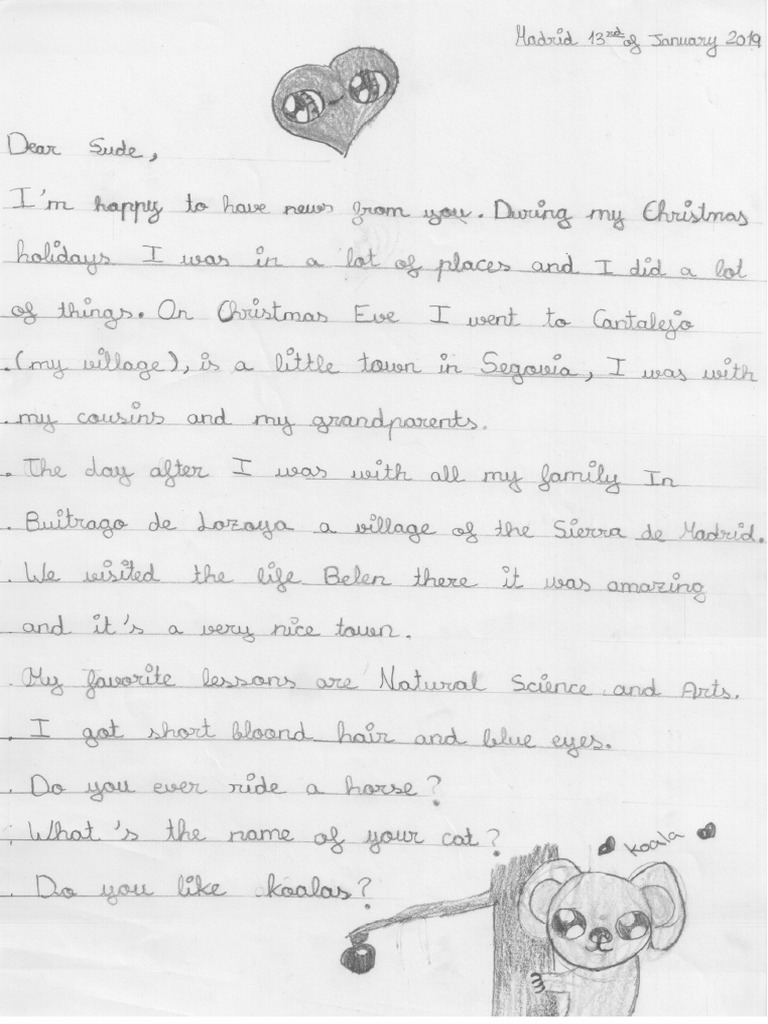 Madrid 13rd of January 2019
Dear Sude,
I'm happy to have news from you. During my Christmas
holidays I was in a lot of places and I did a lot
of things. On Christmas Eve I went to Cantalejo
(my village), is a little town in Segovia, I was with
my cousins and my grandparents.
The day after I was with all my family In
Buitrago de Lozoya a village of the Sierra de Madrid.
We visited the life Belen there it was amazing
and it's a very nice town.
My favorite lessons are Natural Science and Arts.
I got short bloond hair and blue eyes.
Do you ever ride a horse?
What's the name of your cat?
koala
Do you like koalas?